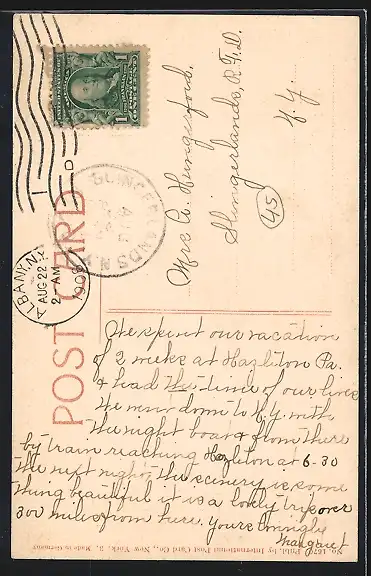 POST CARD
ALBANY, N.Y.
AUG 22
2 - AM
1908
SLINGERLANDS N.Y.
AUG
1
Mrs C. Hungerford.
Slingerlands, R.F.D.
N.Y.
45
We spent our vacation
of 2 weeks at Hazleton Pa.
& had the time of our lives
We went down to N.Y. with
the night boat & from there
by train reaching Hazleton at 6-30
the next night the scenery is some
thing beautiful it is a lovely trip over
300 miles from here. Yours lovingly
Margaret
Publ. by International Post Card Co., New York, Made in Germany